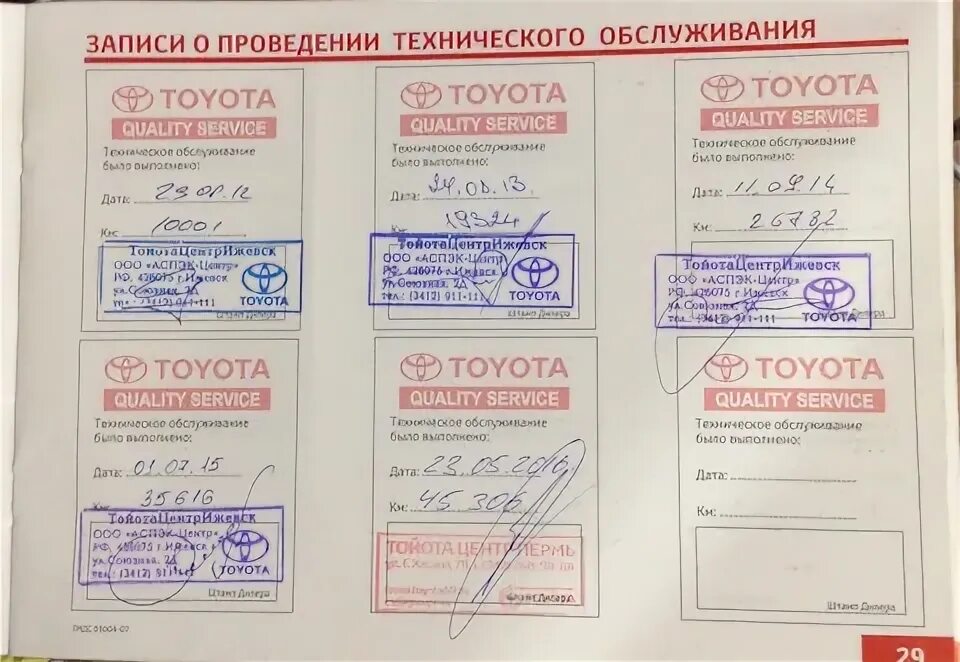 ЗАПИСИ О ПРОВЕДЕНИИ ТЕХНИЧЕСКОГО ОБСЛУЖИВАНИЯ
TOYOTA
QUALITY SERVICE
Техническое обслуживание
было выполнено:
Дата:
Км: 10001
ТойотаЦентрИжевск
ООО «АСПЭК-Центр»
РФ, 426076 г.Ижевск
ул.Союзная, 2Д
тел.: (3412) 911-111
TOYOTA
Штамп Дилера
TOYOTA
QUALITY SERVICE
Техническое обслуживание
было выполнено:
Дата: 24.08.13.
Км: 19324
ТойотаЦентрИжевск
ООО «АСПЭК-Центр»
РФ, 426076 г.Ижевск
ул.Союзная, 2Д
тел.: (3412) 911-111
TOYOTA
Штамп Дилера
TOYOTA
QUALITY SERVICE
Техническое обслуживание
было выполнено:
Дата: 11.09.14
Км: 26782
ТойотаЦентрИжевск
ООО «АСПЭК-Центр»
РФ, 426076 г.Ижевск
ул.Союзная, 2Д
тел.: (3412) 911-111
TOYOTA
Штамп Дилера
TOYOTA
QUALITY SERVICE
Техническое обслуживание
было выполнено:
Дата: 01.07.15
Км: 35616
ТойотаЦентрИжевск
ООО «АСПЭК-Центр»
РФ, 426076 г.Ижевск
ул.Союзная, 2Д
тел.: (3412) 911-111
TOYOTA
Штамп Дилера
TOYOTA
QUALITY SERVICE
Техническое обслуживание
было выполнено:
Дата: 23.05.2016
Км: 45.306
ТОЙОТА ЦЕНТР ПЕРМЬ
Штамп Дилера
TOYOTA
QUALITY SERVICE
Техническое обслуживание
было выполнено:
Дата:
Км:
Штамп Дилера
29